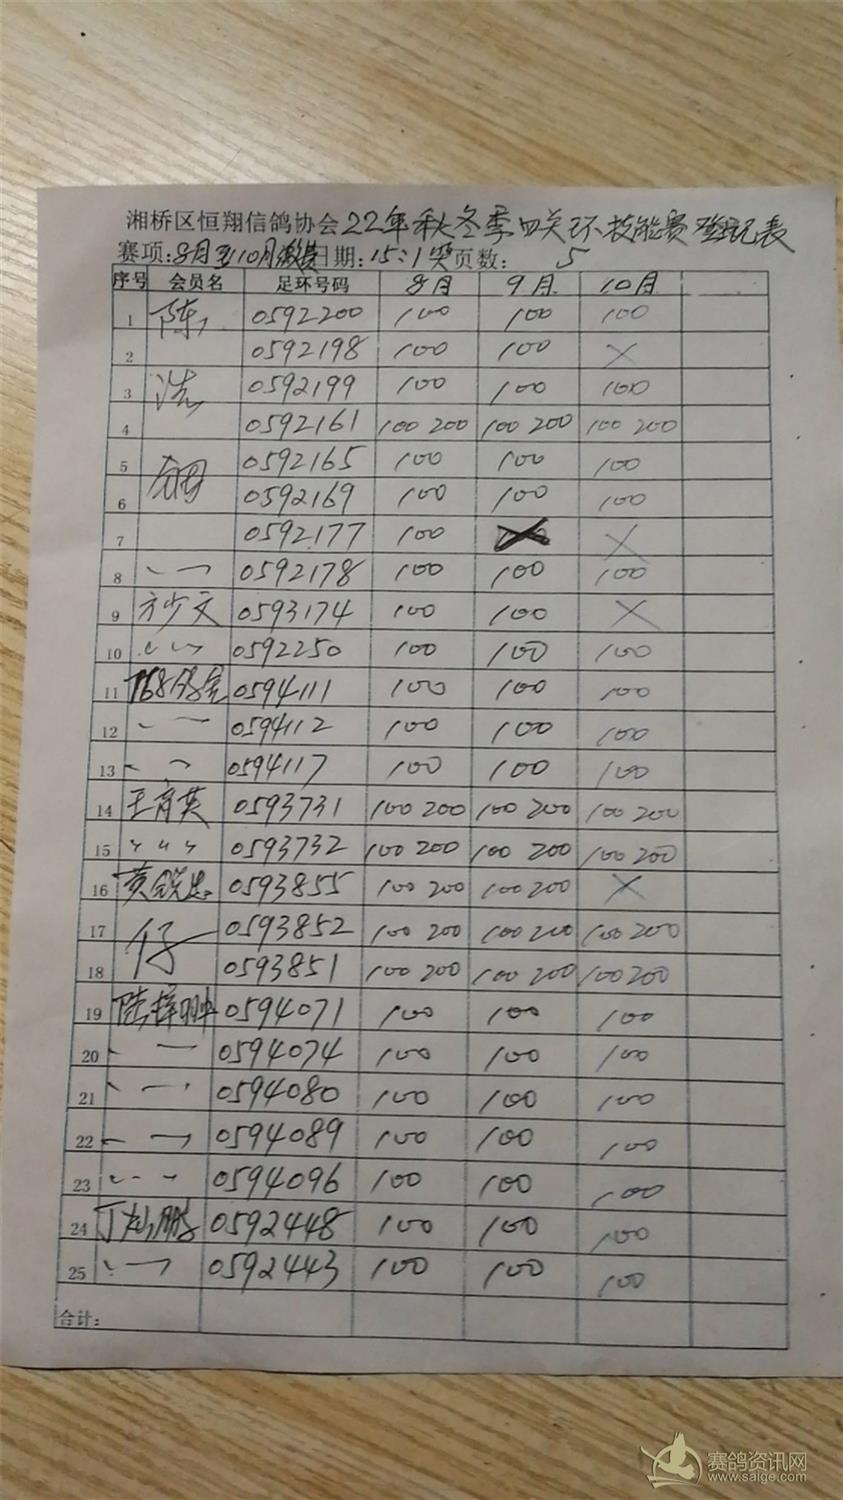 湘桥区恒翔信鸽协会22年秋冬季四关环技能赛登记表
赛项:8月至10月缴费日期:15:1奖页数: 5
序号 会员名 足环号码 8月 9月 10月
1 陈 0592200 100 100 100
2 0592198 100 100 ×
3 浩 0592199 100 100 100
4 0592161 100 200 100 200 100 200
5 0592165 100 100 100
6 0592169 100 100 100
7 0592177 100 ×
8 0592178 100 100 100
9 方少文 0593174 100 100 ×
10 〃 0592250 100 100 100
11 168鸽舍 0594111 100 100 100
12 0594112 100 100 100
13 0594117 100 100 100
14 王育英 0593731 100 200 100 200 100 200
15 〃 0593732 100 200 100 200 100 200
16 黄锐忠 0593855 100 200 100 200 ×
17 仔 0593852 100 200 100 200 100 200
18 0593851 100 200 100 200 100 200
19 陈梓翀 0594071 100 100 100
20 0594074 100 100 100
21 0594080 100 100 100
22 0594089 100 100 100
23 0594096 100 100 100
24 丁灿鹏 0592448 100 100 100
25 0592443 100 100 100
合计:
赛鸽资讯网
www.saige.com